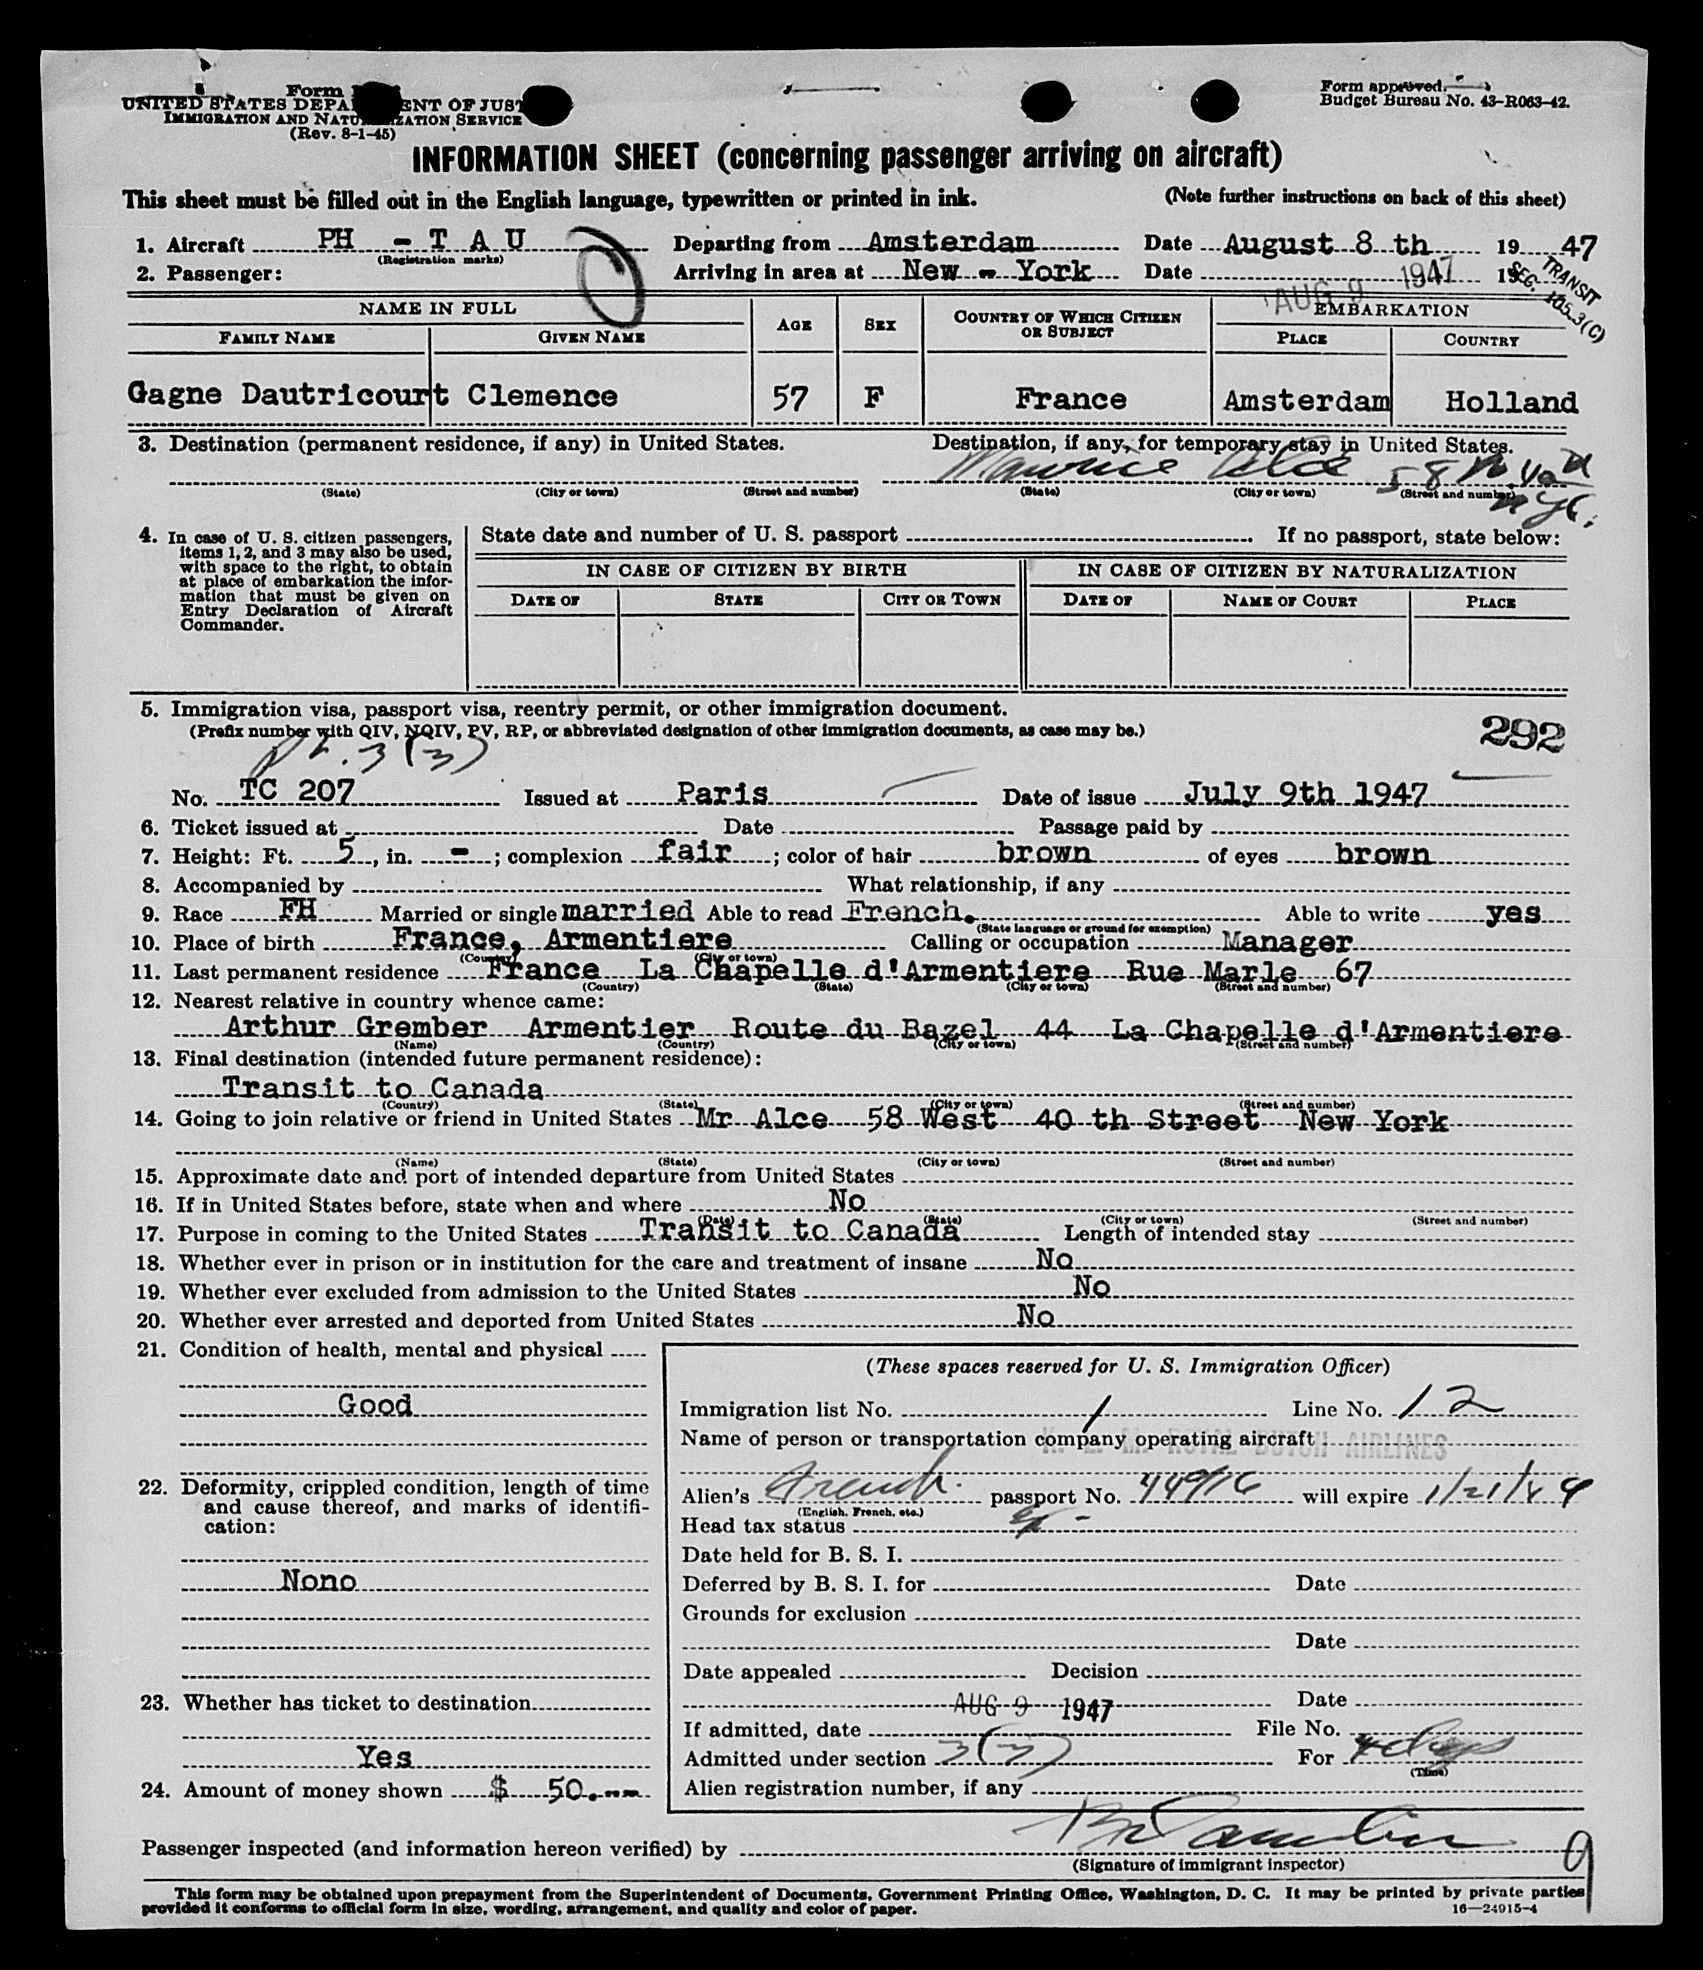 Form
UNITED STATES DEPA ENT OF JUST
IMMIGRATION AND NATU IZATION SERVICE
(Rev. 8-1-45)
Form approved.
Budget Bureau No. 43-R063-42.
INFORMATION SHEET (concerning passenger arriving on aircraft)
This sheet must be filled out in the English language, typewritten or printed in ink. (Note further instructions on back of this sheet)
1. Aircraft PH - T A U Departing from Amsterdam Date August 8 th 1947
(Registration marks)
2. Passenger: Arriving in area at New - York Date AUG 9 1947 19
TRANSIT
SEC. 105.3(C)
NAME IN FULL AGE SEX COUNTRY OF WHICH CITIZEN OR SUBJECT EMBARKATION
FAMILY NAME GIVEN NAME PLACE COUNTRY
Gagne Dautricourt Clemence 57 F France Amsterdam Holland
3. Destination (permanent residence, if any) in United States. Destination, if any, for temporary stay in United States.
Maurice Alce 58 W. 40
(State) (City or town) (Street and number) (State) (City or town) (Street and number)
NYC.
4. In case of U. S. citizen passengers, items 1, 2, and 3 may also be used, with space to the right, to obtain at place of embarkation the information that must be given on Entry Declaration of Aircraft Commander.
State date and number of U. S. passport If no passport, state below:
IN CASE OF CITIZEN BY BIRTH IN CASE OF CITIZEN BY NATURALIZATION
DATE OF STATE CITY OR TOWN DATE OF NAME OF COURT PLACE
5. Immigration visa, passport visa, reentry permit, or other immigration document.
(Prefix number with QIV, NQIV, PV, RP, or abbreviated designation of other immigration documents, as case may be.)
292
3(3)
No. TC 207 Issued at Paris Date of issue July 9th 1947
6. Ticket issued at Date Passage paid by
7. Height: Ft. 5, in. -; complexion fair; color of hair brown of eyes brown
8. Accompanied by What relationship, if any
9. Race FH Married or single married Able to read French. Able to write yes
(State language or ground for exemption)
10. Place of birth France, Armentiere Calling or occupation Manager
(Country) (City or town)
11. Last permanent residence France La Chapelle d'Armentiere Rue Marle 67
(Country) (State) (City or town) (Street and number)
12. Nearest relative in country whence came:
Arthur Grember Armentier Route du Bazel 44 La Chapelle d'Armentiere
(Name) (Country) (City or town) (Street and number)
13. Final destination (intended future permanent residence):
Transit to Canada
(Country) (State) (City or town) (Street and number)
14. Going to join relative or friend in United States Mr Alce 58 West 40 th Street New York
(Name) (State) (City or town) (Street and number)
15. Approximate date and port of intended departure from United States
16. If in United States before, state when and where No
(Date) (State) (City or town) (Street and number)
17. Purpose in coming to the United States Transit to Canada Length of intended stay
18. Whether ever in prison or in institution for the care and treatment of insane No
19. Whether ever excluded from admission to the United States No
20. Whether ever arrested and deported from United States No
21. Condition of health, mental and physical
Good
22. Deformity, crippled condition, length of time and cause thereof, and marks of identification:
Nono
23. Whether has ticket to destination
Yes
24. Amount of money shown $ 50.--
(These spaces reserved for U. S. Immigration Officer)
Immigration list No. 1 Line No. 12
Name of person or transportation company operating aircraft K. L. M. ROYAL DUTCH AIRLINES
Alien's French passport No. 44916 will expire 1/21/49
(English, French, etc.)
Head tax status
Date held for B. S. I.
Deferred by B. S. I. for Date
Grounds for exclusion
Date
Date appealed Decision
AUG 9 1947 Date
If admitted, date File No.
Admitted under section 3(3) For 4 days
(Time)
Alien registration number, if any
Passenger inspected (and information hereon verified) by
(Signature of immigrant inspector)
9
This form may be obtained upon prepayment from the Superintendent of Documents, Government Printing Office, Washington, D. C. It may be printed by private parties
provided it conforms to official form in size, wording, arrangement, and quality and color of paper.
16—24915-4